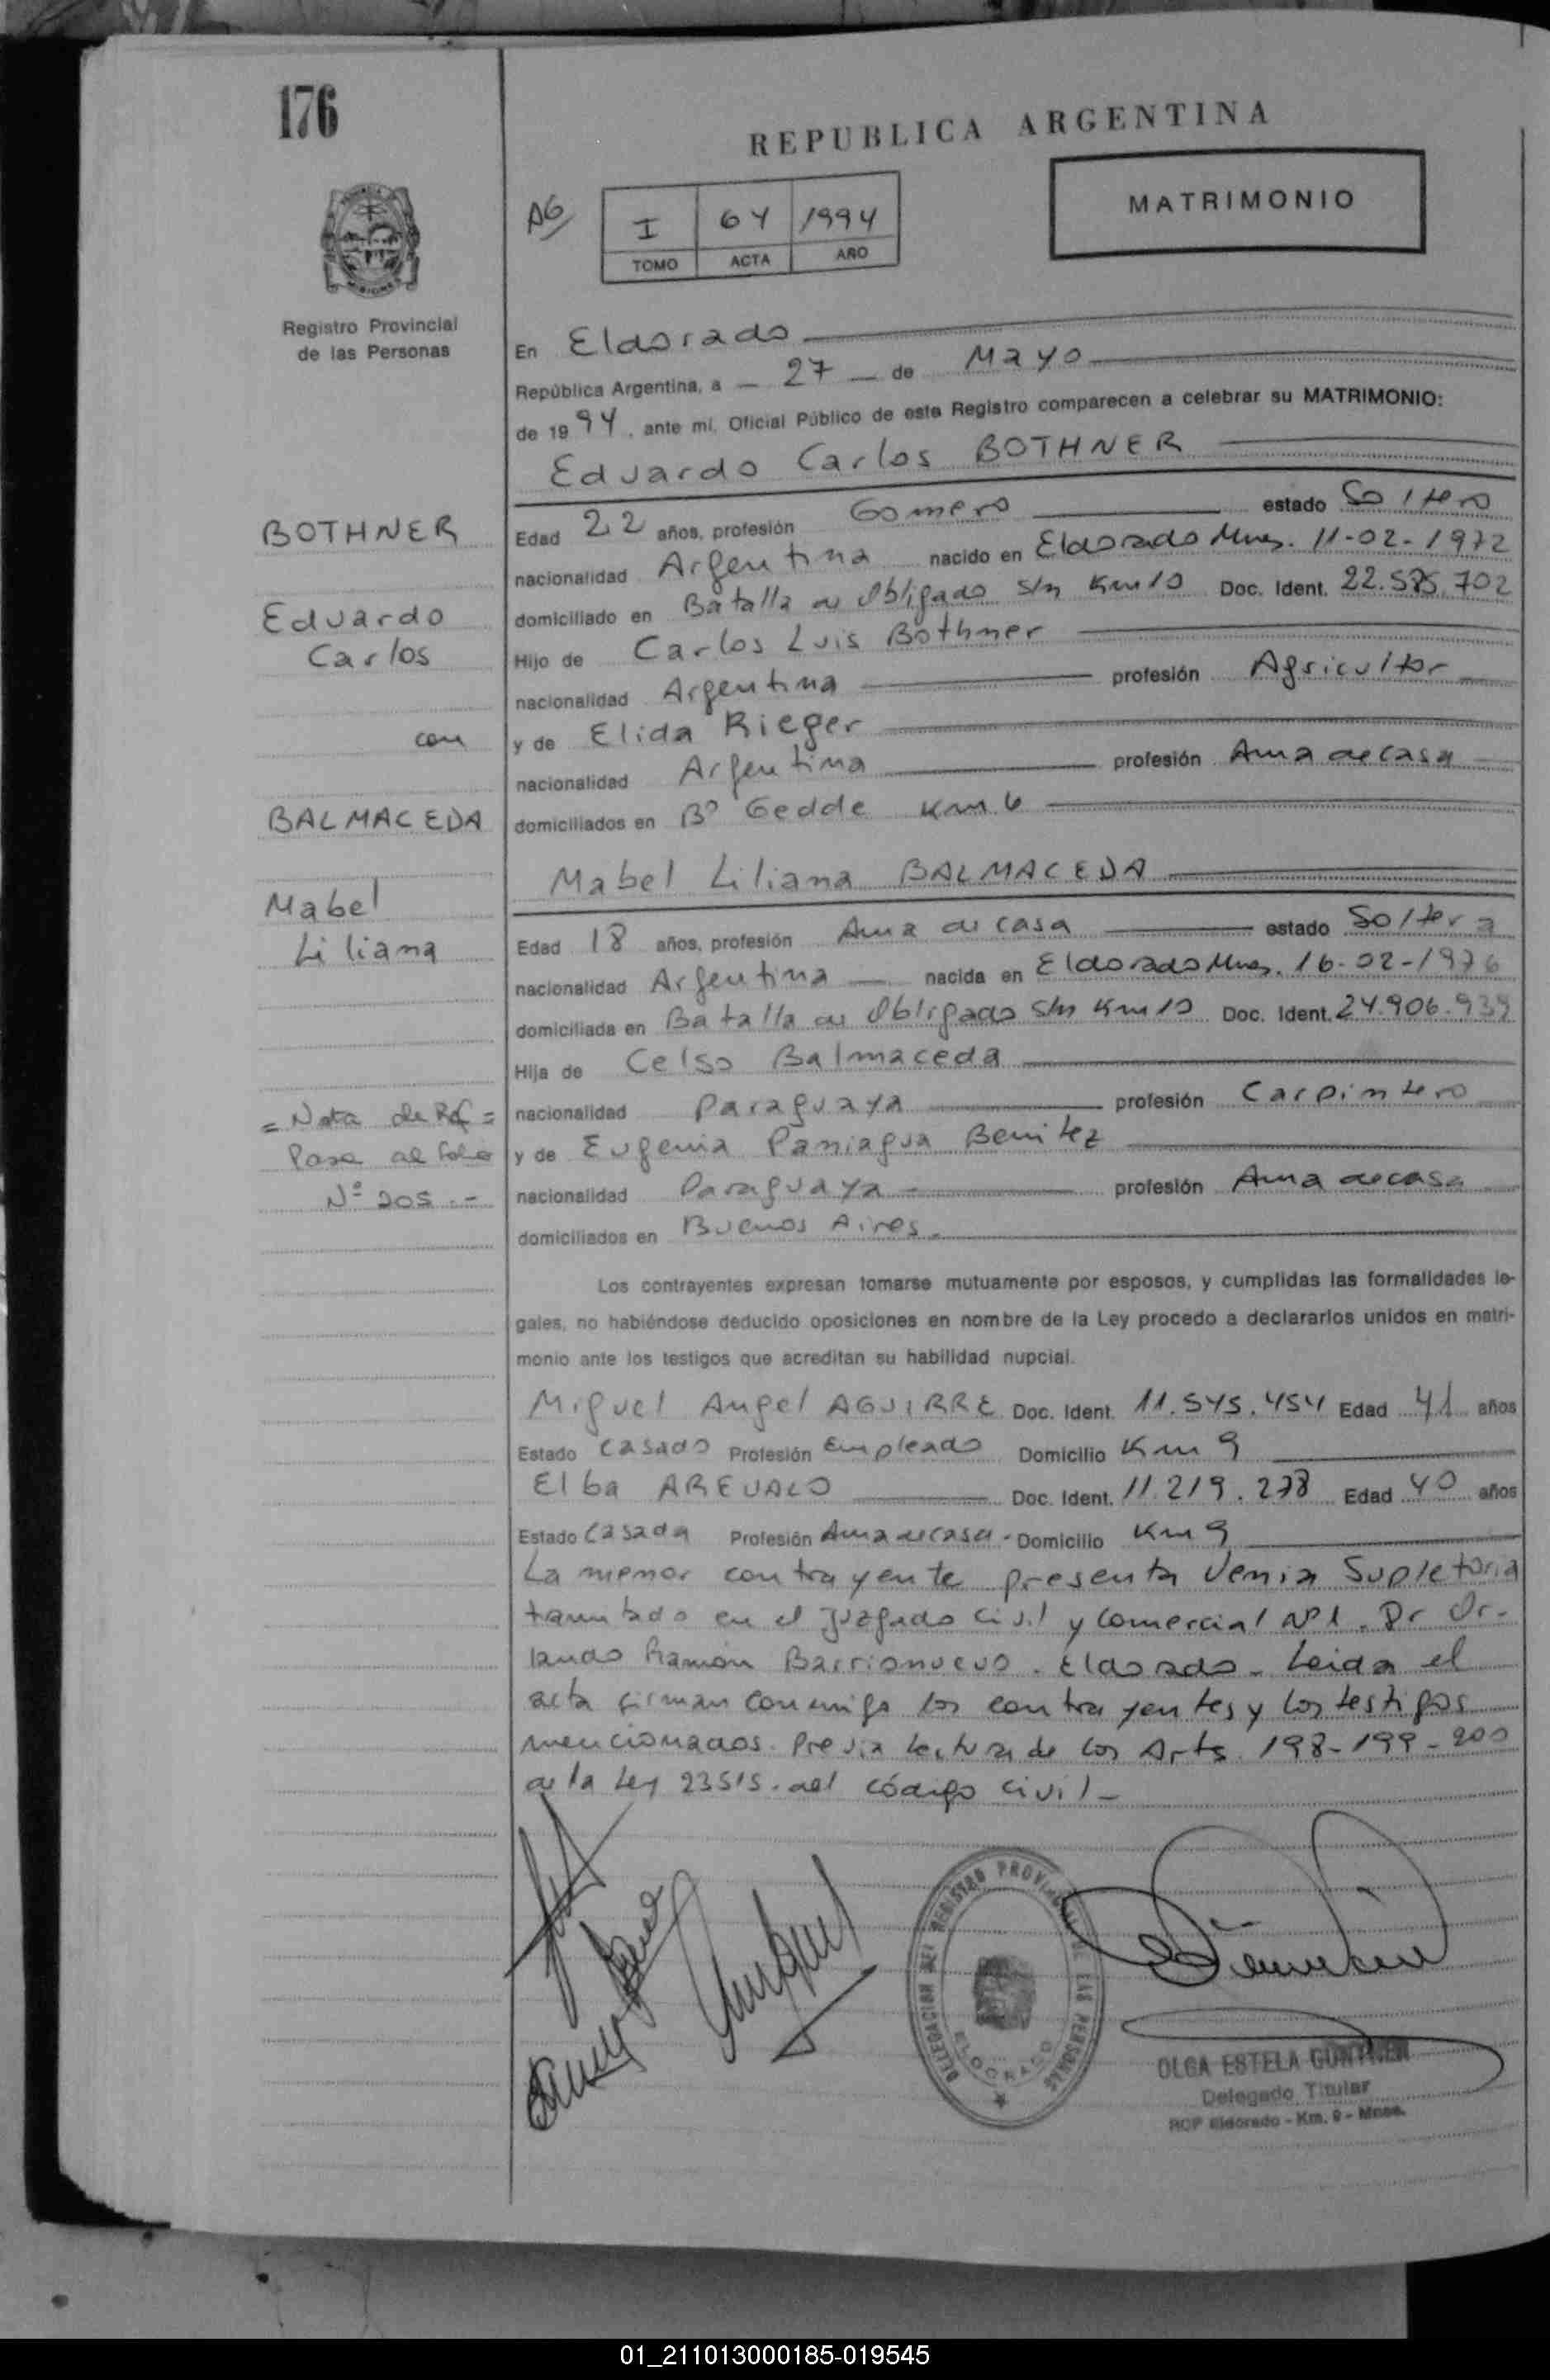 176
REPUBLICA ARGENTINA
MATRIMONIO
AG
I 64 1994
TOMO ACTA AÑO
Registro Provincial
de las Personas
En Eldorado
República Argentina, a 27 de Mayo
de 1994, ante mí, Oficial Público de este Registro comparecen a celebrar su MATRIMONIO:
Eduardo Carlos BOTHNER
BOTHNER
Eduardo
Carlos
con
BALMACEDA
Mabel
Liliana
= Nota de Ref =
Pasa al folio
Nº 205.-
Edad 22 años, profesión Gomero estado Soltero
nacionalidad Argentina nacido en Eldorado Mnes. 11-02-1972
domiciliado en Batalla de Obligado s/n Km 10 Doc. Ident. 22.575.702
Hijo de Carlos Luis Bothner
nacionalidad Argentina profesión Agricultor
y de Elida Rieger
nacionalidad Argentina profesión Ama de casa
domiciliados en Bº Gedde Km. 6
Mabel Liliana BALMACEDA
Edad 18 años, profesión Ama de casa estado Soltera
nacionalidad Argentina nacida en Eldorado Mnes. 16-02-1976
domiciliada en Batalla de Obligado s/n Km 10 Doc. Ident. 24.906.939
Hija de Celso Balmaceda
nacionalidad Paraguaya profesión Carpintero
y de Eugenia Paniagua Benitez
nacionalidad Paraguaya profesión Ama de casa
domiciliados en Buenos Aires.
Los contrayentes expresan tomarse mutuamente por esposos, y cumplidas las formalidades le-
gales, no habiéndose deducido oposiciones en nombre de la Ley procedo a declararlos unidos en matri-
monio ante los testigos que acreditan su habilidad nupcial.
Miguel Angel AGUIRRE Doc. Ident. 11.545.454 Edad 41 años
Estado Casado Profesión Empleado Domicilio Km 9
Elba AREVALO Doc. Ident. 11.219.278 Edad 40 años
Estado Casada Profesión Ama de casa. Domicilio Km 9
La menor contrayente presenta Venia Supletoria
tramitado en el Juzgado Civil y Comercial Nº 1. Dr Or-
lando Ramón Barrionuevo. Eldorado. Leida el
acta firman conmigo los contrayentes y los testigos
mencionados. Previa lectura de los Arts. 198-199-200
de la Ley 23515. del código civil-
DELEGACION DEL REGISTRO PROVINCIAL DE LAS PERSONAS
ELDORADO
OLGA ESTELA GÜNTHER
Delegado Titular
RCP Eldorado - Km. 9 - Mnes.
01_211013000185-019545